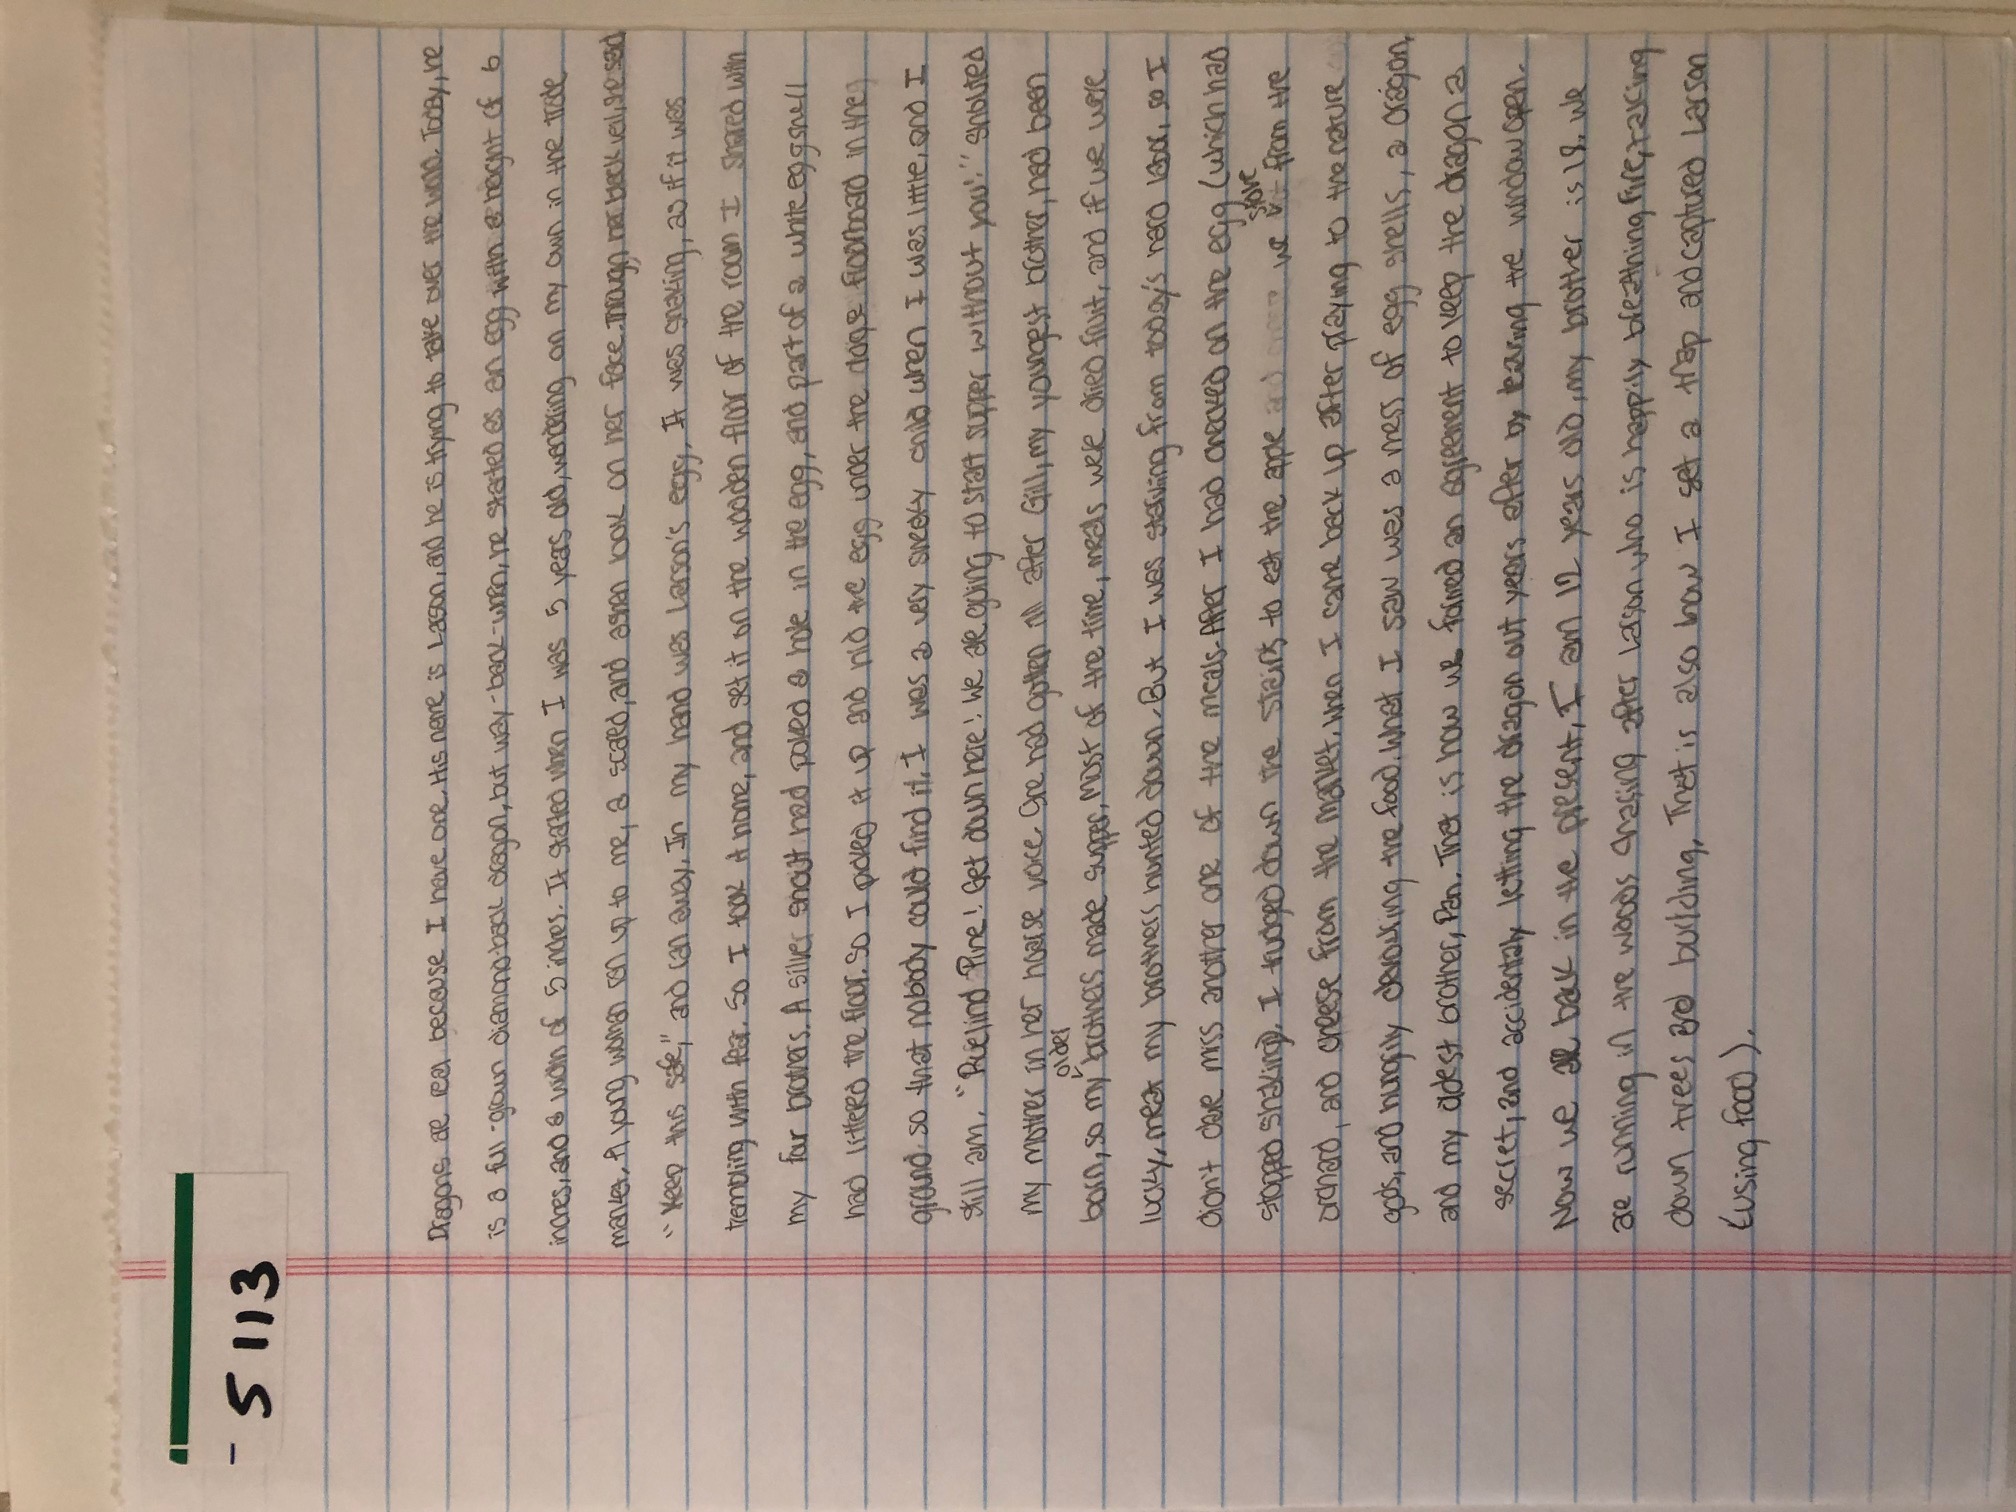 - 5113
Dragons are real because I have one. His name is Larson, and he is trying to take over the world. Today, he
is a full-grown diamond-back dragon, but way-back-when, he started as an egg with a height of 6
inches, and a width of 5 inches. It started when I was 5 years old, wandering on my own in the trade
market. A young woman ran up to me, a scared, and ashen look on her face. Through her black veil, she said
"Keep this safe," and ran away. In my hand was Larson's egg. It was shaking, as if it was
trembling with fear. So I took it home, and set it on the wooden floor of the room I shared with
my four brothers. A silver snout had poked a hole in the egg, and part of a white eggshell
had littered the floor. So I picked it up and hid the egg under the floorboard in the
ground so that nobody could find it. I was a very sneaky child when I was little, and I
still am. "Ruelind Pine! Get down here! We are going to start supper without you!" shouted
my mother in her hoarse voice. She had gotten ill after Gill, my youngest brother, had been
born, so my older brothers made supper. Most of the time, meals were dried fruit, and if we were
lucky, meat my brothers hunted down. But I was starving from today's hard labor, so I
didn't dare miss another one of the meals. After I had checked on the egg (which had
stopped shaking). I trudged down the stairs to eat the apple we stole from the
orchard, and cheese from the market. When I came back up after praying to the nature
gods, and hungrily devouring the food. What I saw was a mess of egg shells, a dragon,
and my oldest brother, Pan. That is how we formed an agreement to keep the dragon a
secret, and accidentaly letting the dragon out years after by leaving the window open.
Now we are back in the present, I am 12 years old, my brother is 18. We
are running in the woods chasing after Larson who is happily breathing fire, taking
down trees and building. That is also how I set a trap and captured Larson
(using food).